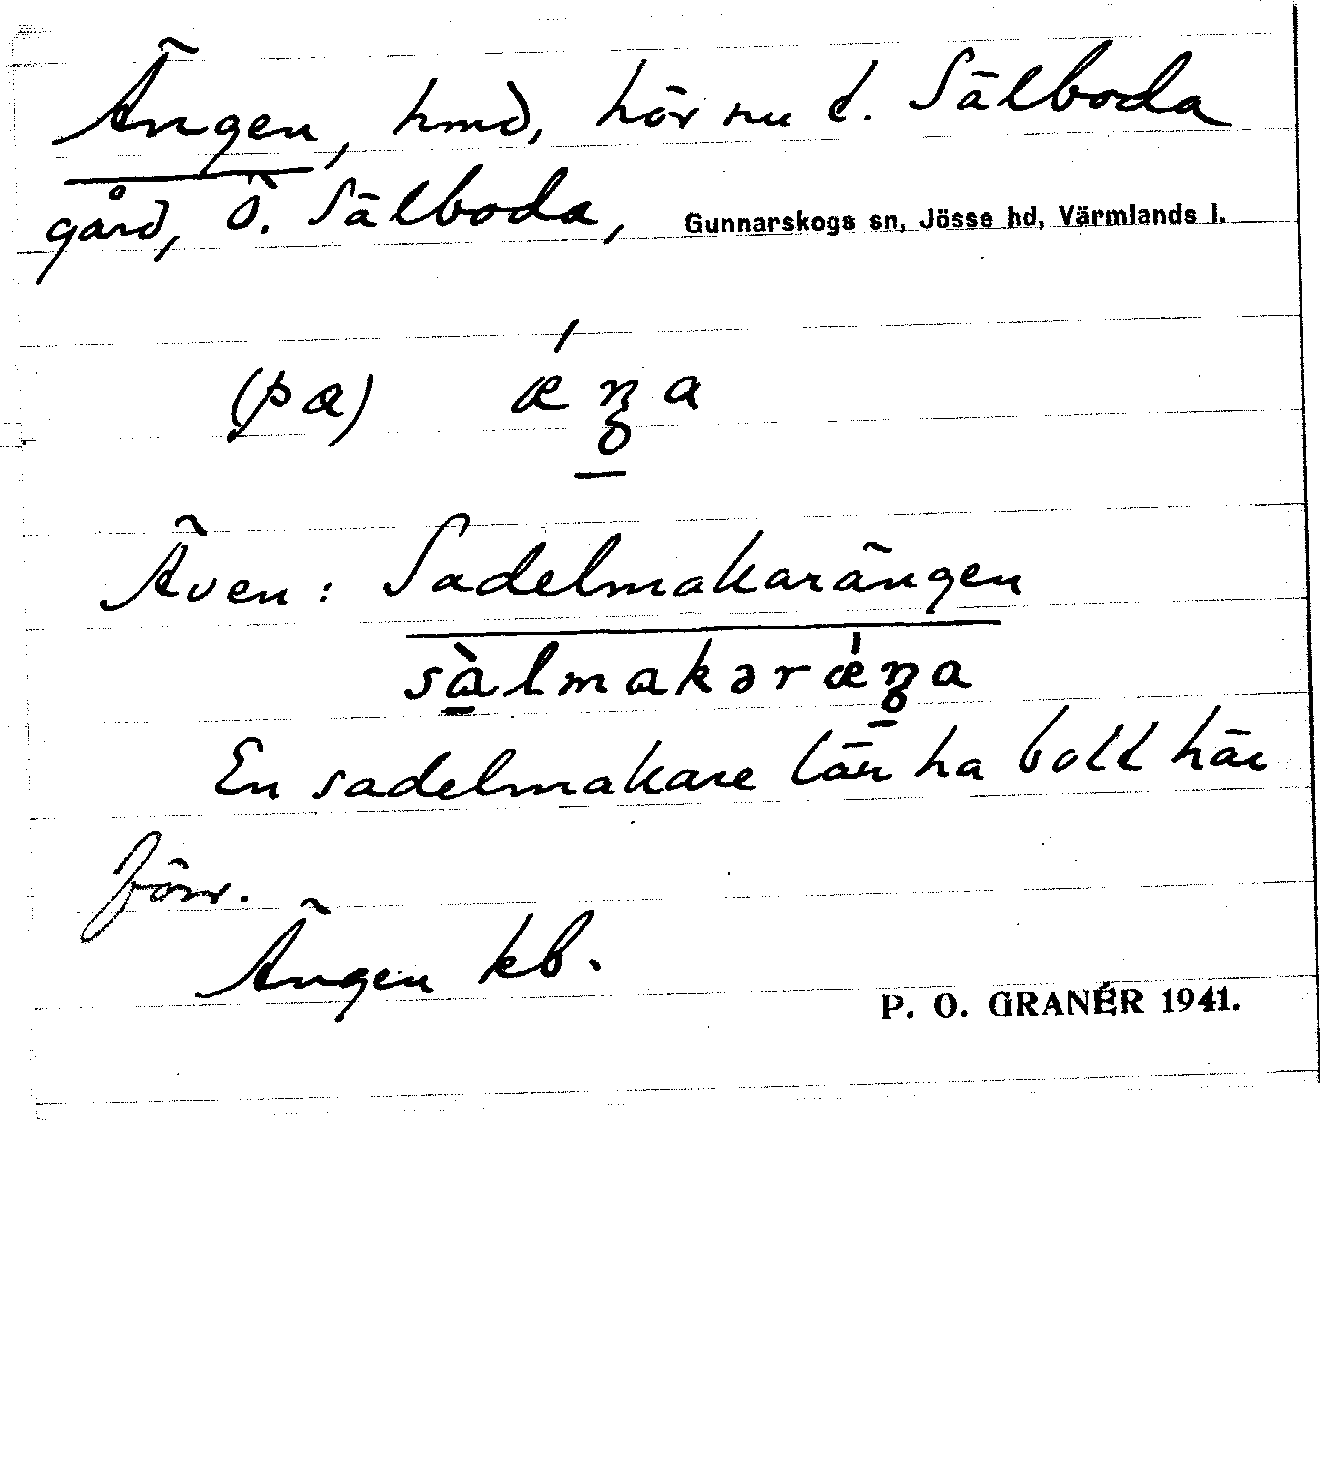 Ängen, hmd, hör nu t. Sälboda
gård, Ö. Sälboda, Gunnarskogs sn, Jösse hd, Värmlands l.
(på) ǽŋa
Även: Sadelmakarängen
sàlmakərǽŋa
En sadelmakare lär ha bott här
förr.
Ängen kb.
P. O. GRANÉR 1941.